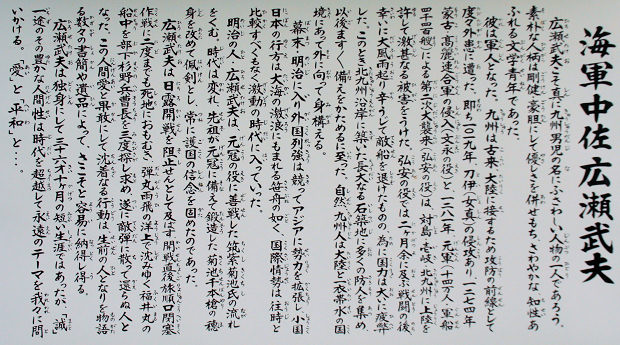 海軍中佐 広瀬武夫
広瀬武夫こそ真に九州男児の名にふさわしい人物の一人であろう。
素朴な人柄は剛健・豪胆にして優しさを併せもち、さわやかな知性あ
ふれる文学青年であった。
彼は軍人となった。九州は古来、大陸に接するため攻防の前線として
度々外患に遭った。即ち一〇一九年、刀伊(女真)の侵攻あり、一二七四年
蒙古・高麗連合軍の侵入(文永の役)と、一二八一年、元軍(十四万人、軍船
四千百艘)による第二次大襲来(弘安の役)は、対島・壱岐・北九州に上陸を
許して激甚なる被害をうけた。弘安の役では二ヶ月余に及ぶ戦闘の後、
幸いに大風雨起り辛うじて敵船を退けたものの、為に国力は大いに疲弊
した。このとき北九州沿岸に築いた長大なる石築地に多くの防人を集め、
以後ますます備えをかためるに至った。自然、九州人は大陸と一衣帯水の国
境にあって外に向って身構える。
幕末・明治に入り外国列強は競ってアジアに勢力を拡張し小国
日本の行方は大海の激浪にもまれる笹舟の如く、国際情勢は往時と
比較すべくもなく激動の時代に入っていった。
明治の人・広瀬武夫は、元冦の役に善戦した筑紫菊池氏の流れ
をくむ。時代は変れ、先祖が元冦に備えて鍛造した菊池千本槍の穂
身を改めて佩剣とし、常に護国の信念を固めたのであった。
広瀬武夫は日露開戦を阻止せんとして及ばず、開戦直後、旅順口閉塞
作戦に二度までも死地におもむき、弾丸雨飛の洋上で沈みゆく福井丸の
船中を部下・杉野兵曹長を三度探し求め、遂に敵弾に散って還らぬ人と
なった。この人間愛と果敢にして沈着なる行動は、生前の人となりを物語
る数々の書簡や遺品によって、さこそと容易に納得し得る。
広瀬武夫は独身にして三十六才ヶ月の短い生涯ではあったが、「誠」
一途のその豊かな人間性は時代を超越して永遠のテーマを我々に問
いかける。「愛」と「平和」と…。